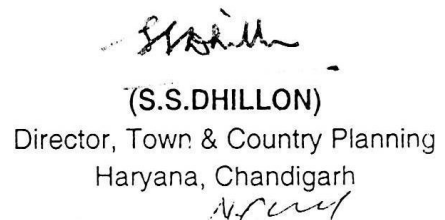 (S.S.DHILLON)
Director, Town & Country Planning
Haryana, Chandigarh